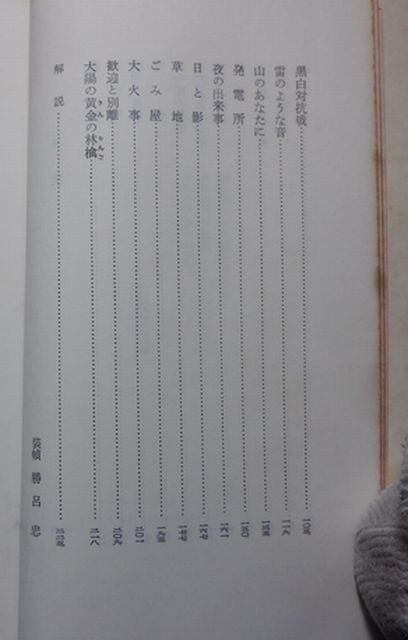 黒白対抗戦……一〇五
雷のような音……一一八
山のあなたに……一三五
発電所……一五〇
夜の出来事……一六一
日と影……一六七
草地……一七七
ごみ屋……一九五
大火事……二〇一
歓迎と別離……二〇九
太陽の黄金の林檎……二一八
きん りんご
解説……
装幀 勝呂 忠